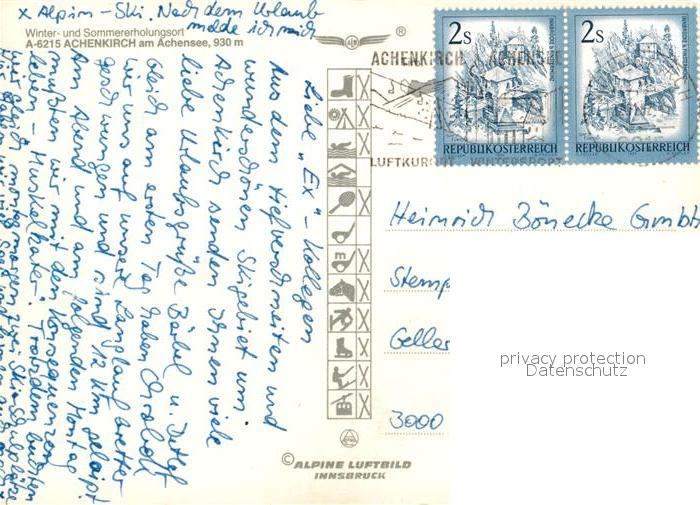 x Alpin-Ski. Nach dem Urlaub
melde ich mich
Winter- und Sommererholungsort
A-6215 ACHENKIRCH am Achensee, 930 m
Liebe "Ex"-Kollegen
Aus dem tiefverschneiten und
wunderschönen Skigebiet um
Achenkirch senden Ihnen viele
liebe Urlaubsgrüße Bärbel u. Detlef
Gleich am ersten Tag haben
wir uns auf unsere Langlaufbretter
geschwungen und sind 12 km gelaipt
Am Abend und am folgenden Montag
mußten wir mit den Konsequenzen
leben - Muskelkater. Trotzdem buchten
wir gleich morgen zwei Skischulplätze
ALF
®
ACHENKIRCH ACHENSEE
LUFTKURORT WINTERSPORT
2s
REPUBLIK ÖSTERREICH
2s
REPUBLIK ÖSTERREICH
Heinrich Bönecke GmbH
Stemp
Geller
3000
privacy protection
Datenschutz
© ALPINE LUFTBILD
INNSBRUCK